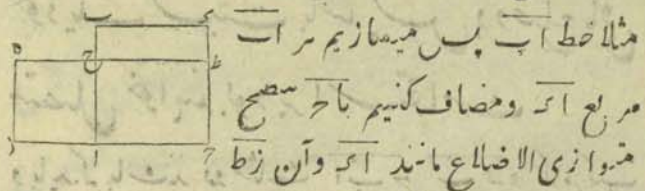 مثلا خط اب پس میسازیم بر اب
مربع اک ومضاف کنیم با ح سطح
متوازی الاضلاع مانند اک وآن زط
ب ک
ه ح ط
ز ا ح